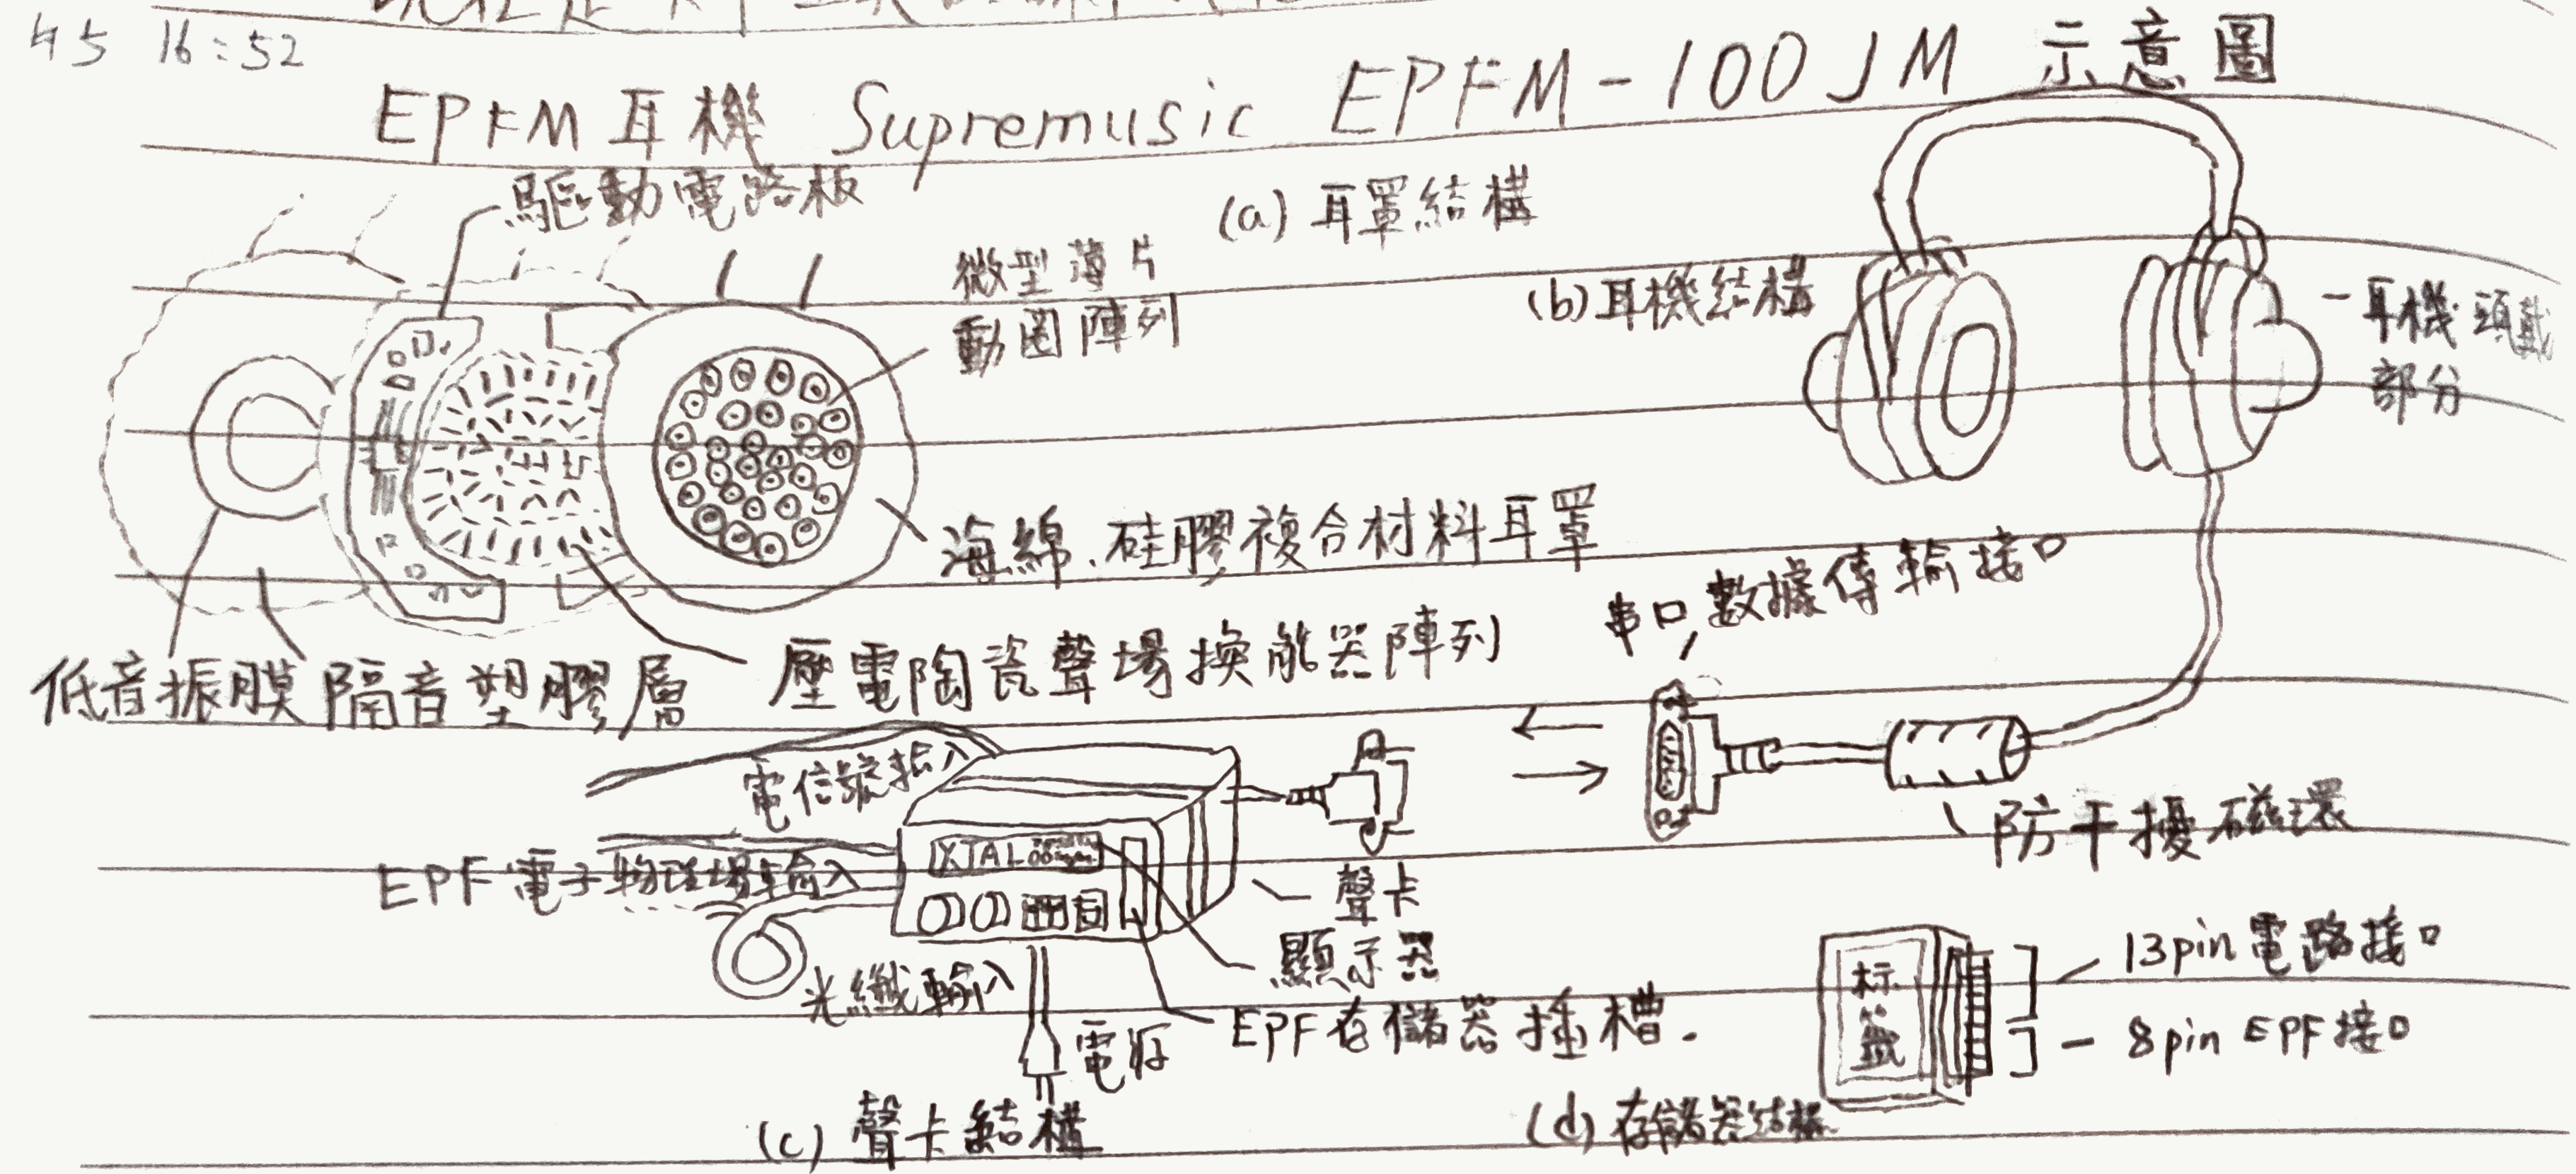 45 16:52
EPFM 耳機 Supremusic EPFM-100JM 示意圖
驅動電路板
(a) 耳罩結構
微型薄片
動圈陣列
(b) 耳機結構
耳機頭戴
部分
海綿.硅膠複合材料耳罩
串口,數據傳輸接口
低音振膜
隔音塑膠層
壓電陶瓷聲場換能器陣列
電信號輸入
防干擾磁環
EPF電子物理場輸入
XTAL
聲卡
顯示器
光纖輸入
EPF存儲器插槽.
電源
标
籤
13pin電路接口
8pin EPF接口
(c) 聲卡結構
(d) 存儲器結構